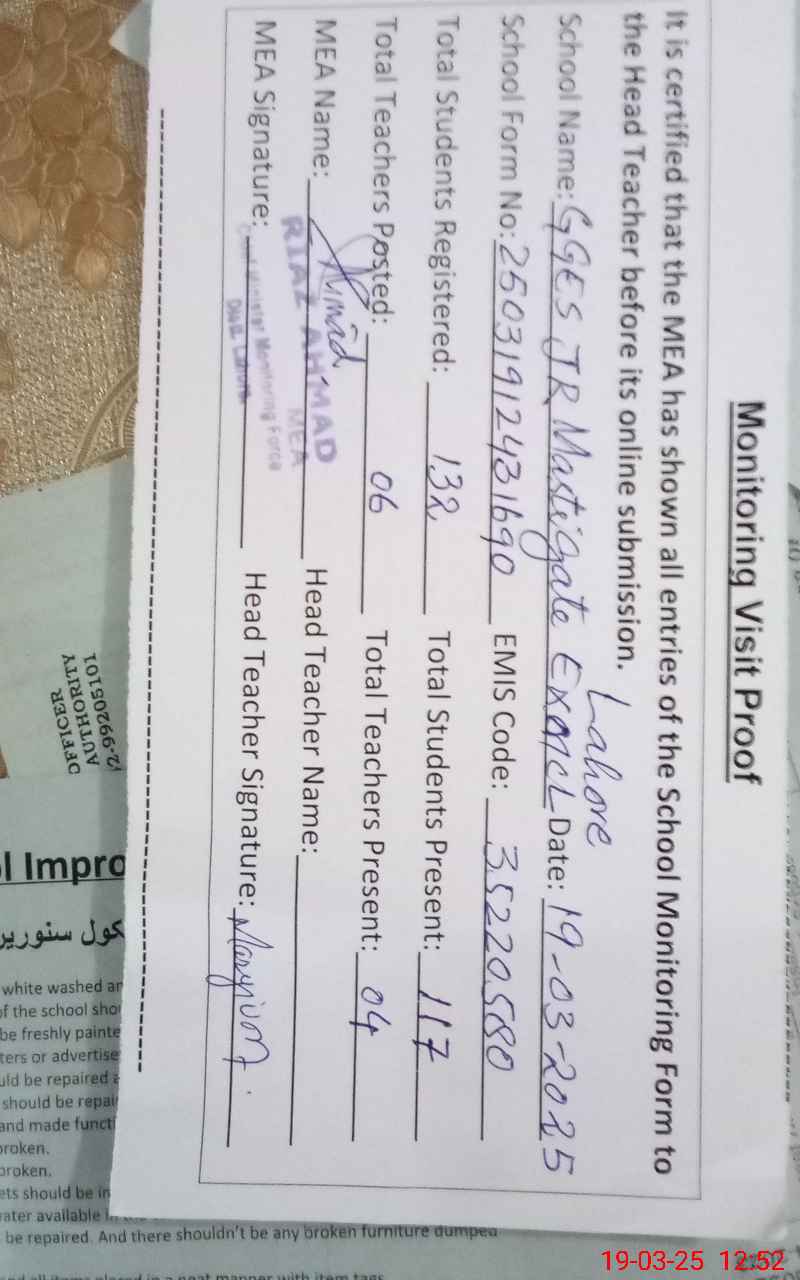 Monitoring Visit Proof
It is certified that the MEA has shown all entries of the School Monitoring Form to
the Head Teacher before its online submission.
Lahore
School Name: GGES JR Mastigate Date: 19-03-2025
School Form No: 25031912431690 EMIS Code: 35220580
Total Students Registered: 132 Total Students Present: 117
Total Teachers Posted: 06 Total Teachers Present: 04
MEA Name: Head Teacher Name:
RIAZ AHMAD
MEA
Chief Minister Monitoring Force
Distt. Lahore
MEA Signature: Head Teacher Signature: Maryium
OFFICER
AUTHORITY
2-99205101
l Impro
کول سنوریں
white washed an
of the school sho
be freshly painte
ters or advertise
uld be repaired a
should be repai
and made functi
broken.
broken.
ets should be in
ater available
be repaired. And there shouldn't be any broken furniture dumped
and all items placed in a neat manner with item tags
19-03-25 12:52